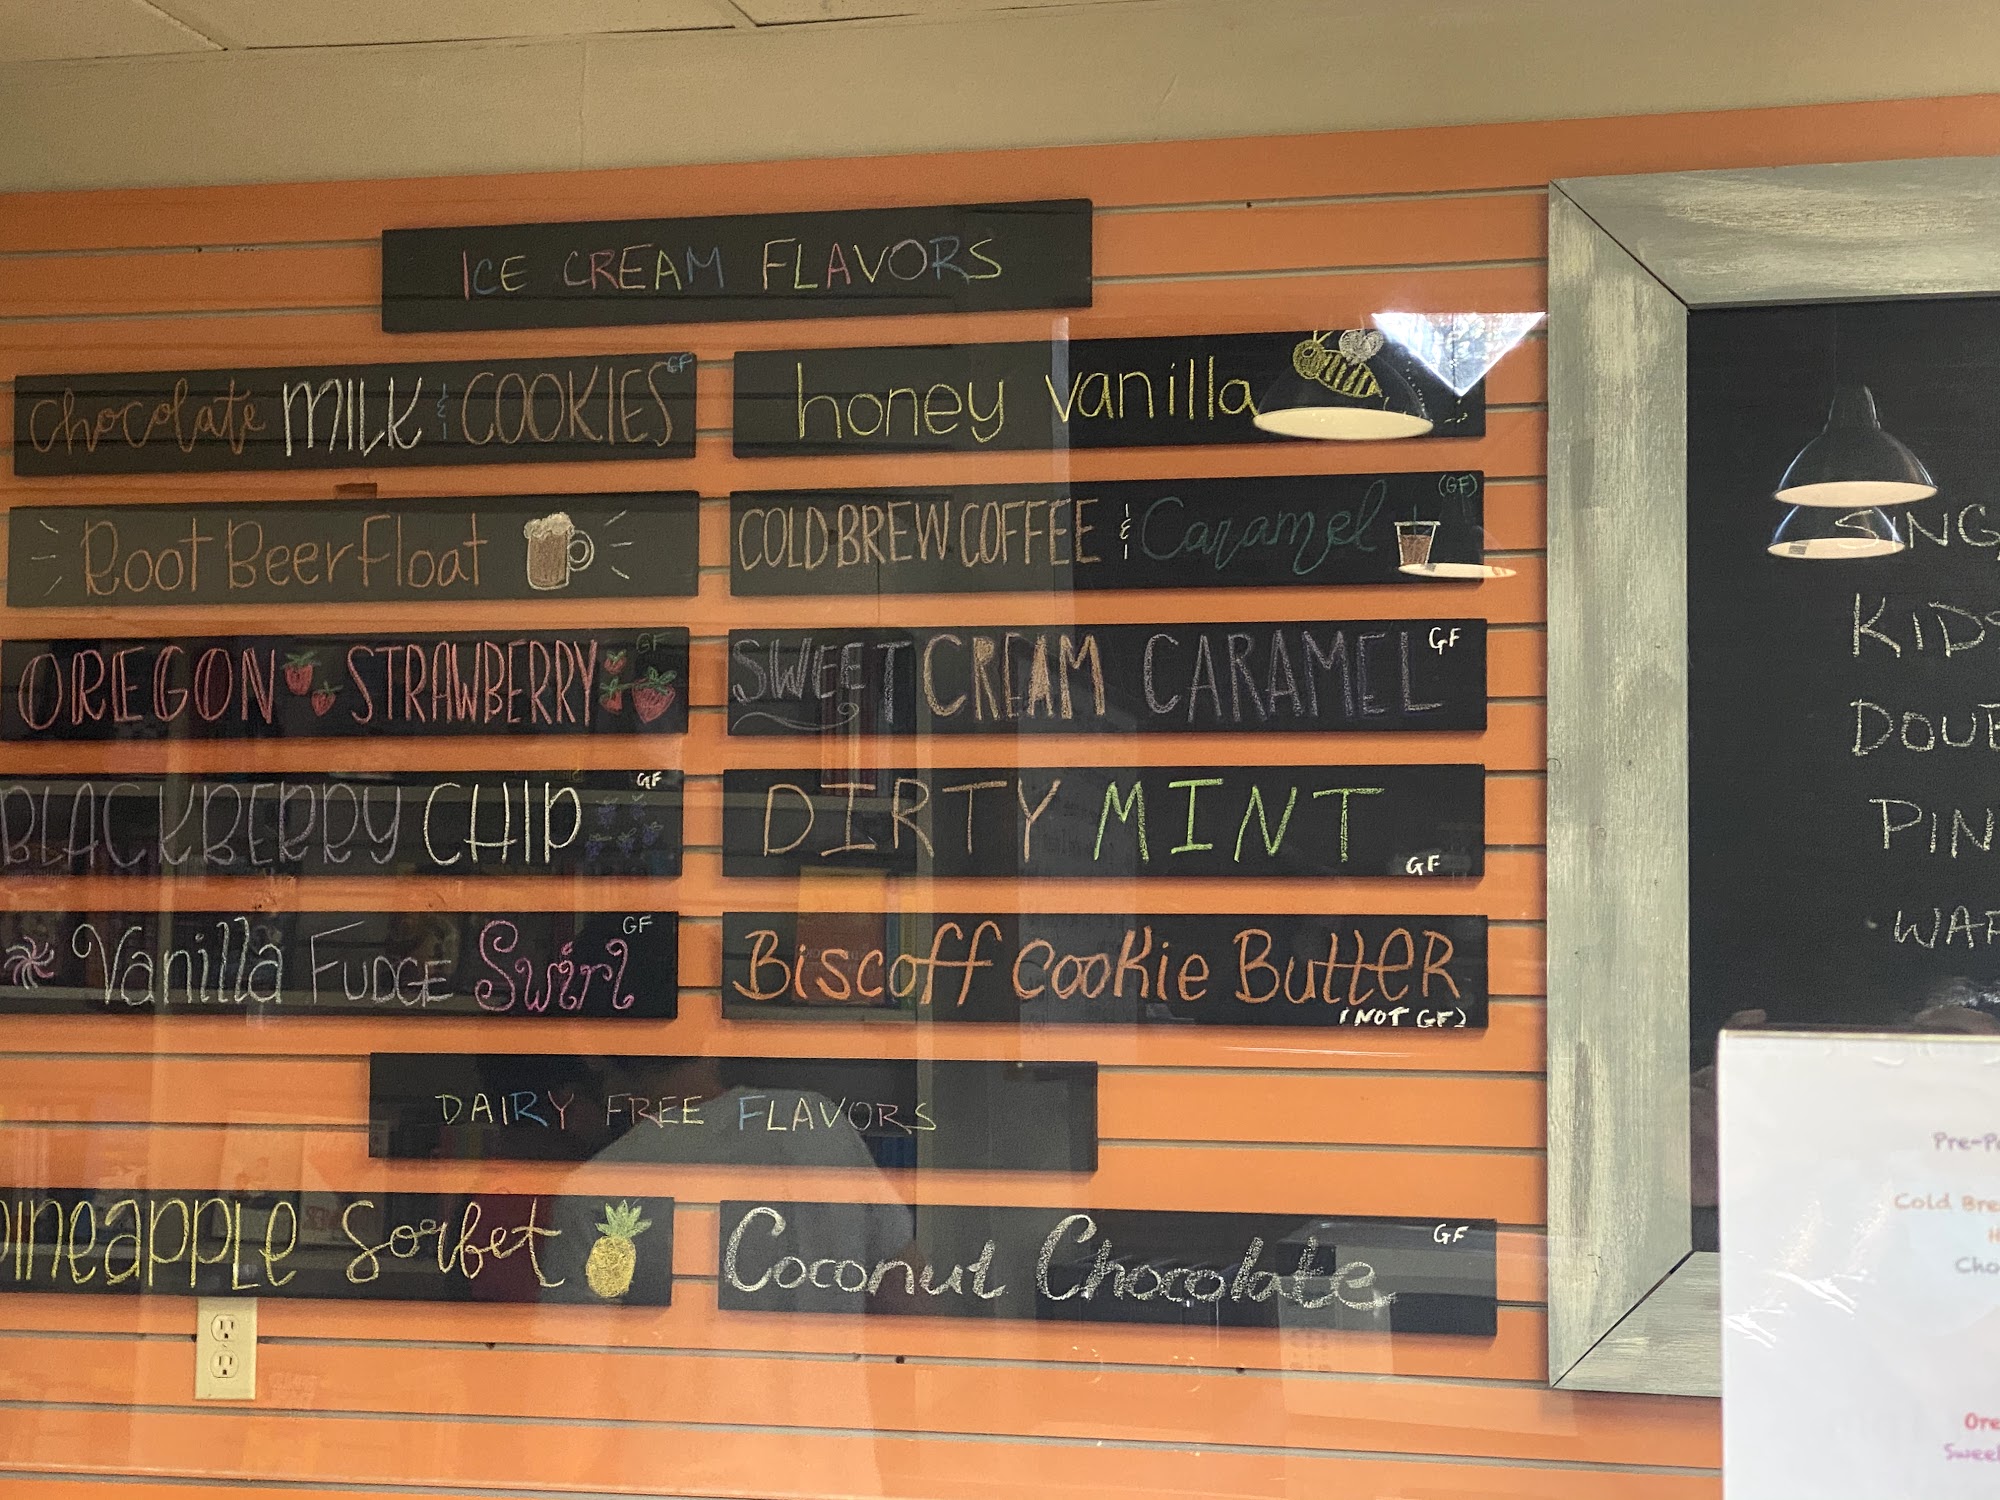 ICE CREAM FLAVORS
chocolate MILK & COOKIES GF
honey vanilla
Root Beer Float
COLD BREW COFFEE & Caramel (GF)
OREGON STRAWBERRY GF
SWEET CREAM CARAMEL GF
BLACKBERRY CHIP GF
DIRTY MINT GF
Vanilla FUDGE Swirl GF
Biscoff Cookie Butter
(NOT GF)
DAIRY FREE FLAVORS
pineapple Sorbet
Coconut Chocolate GF
SING
KIDS
DOUB
PIN
WAF
Pre-Pa
Cold Bre
H
Cho
Ore
Sweet